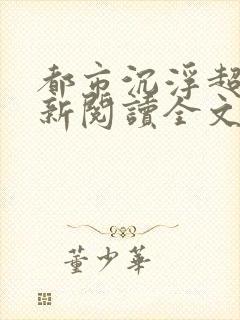 都市沉浮超
新閱讀全文
董少華